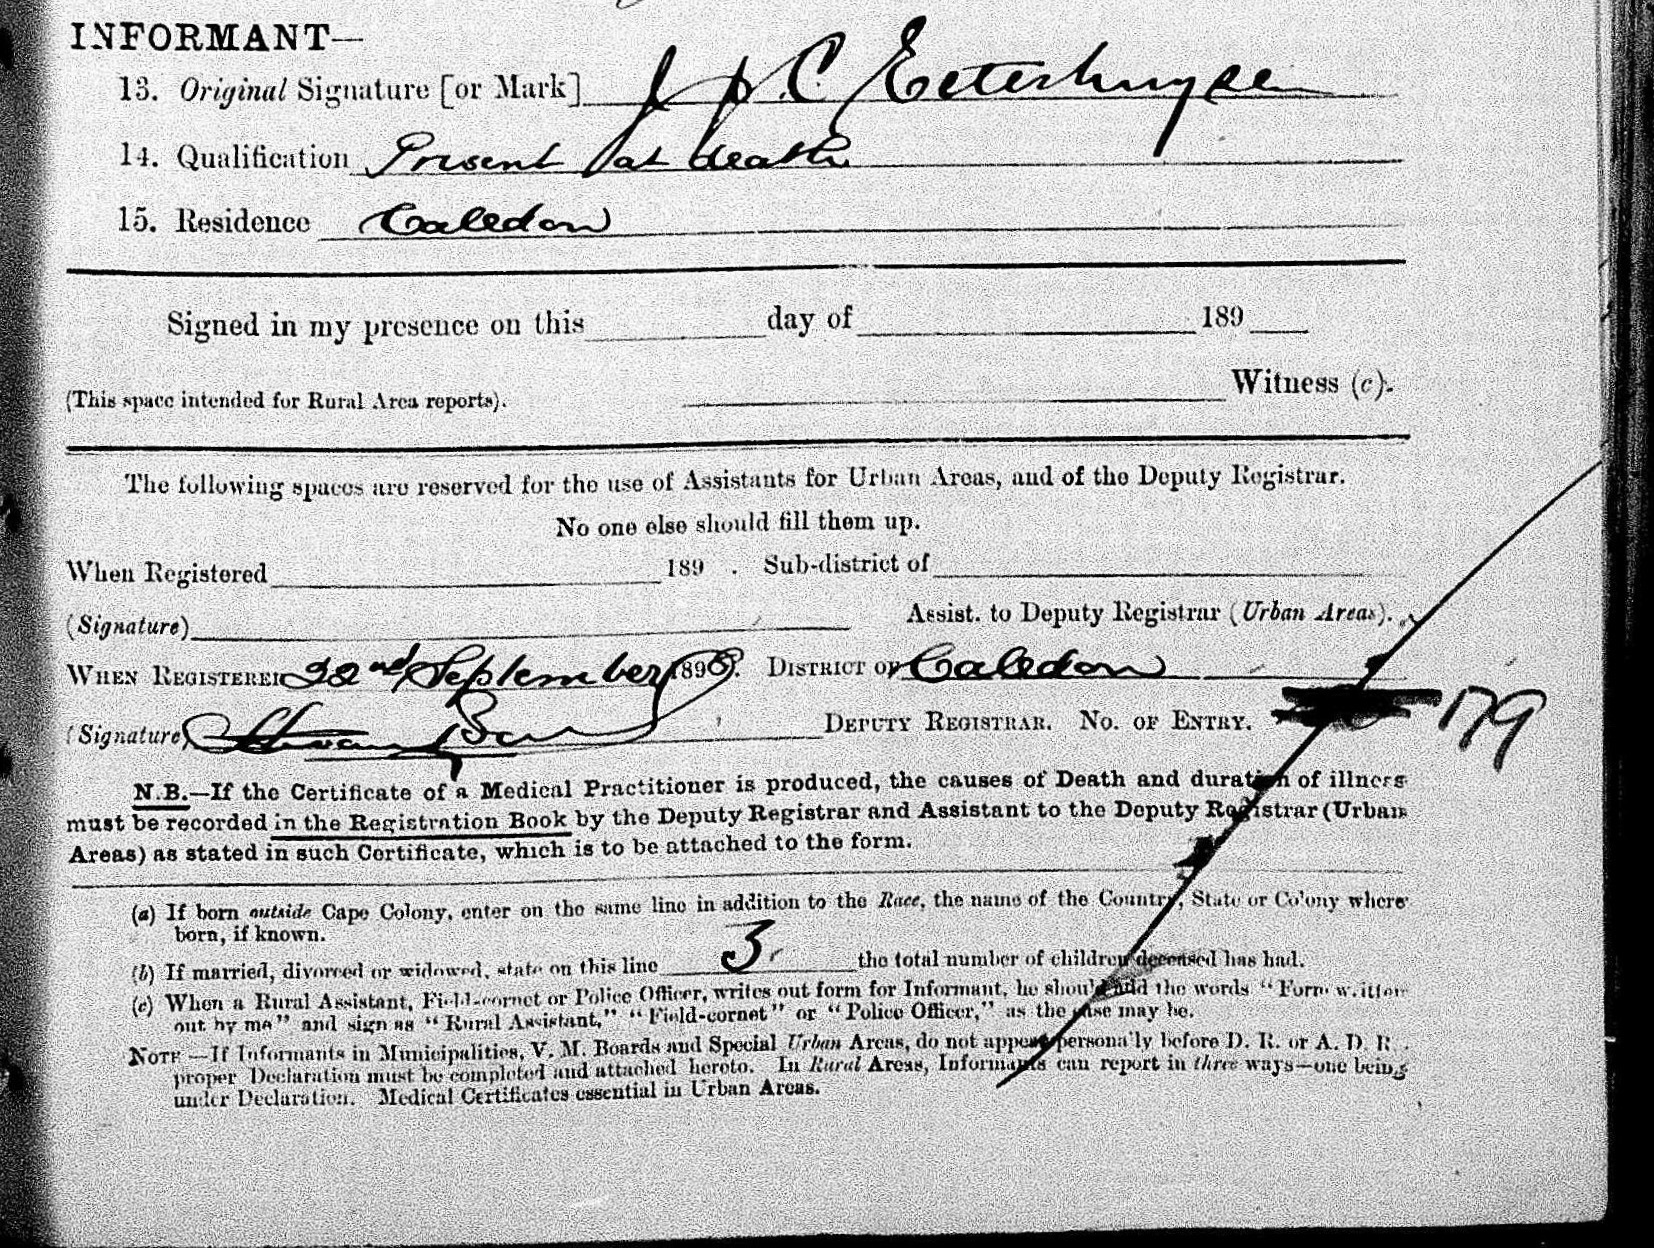 INFORMANT—
13. Original Signature [or Mark] J. P. C. Esterhuysen
14. Qualification Present at death
15. Residence Caledon
Signed in my presence on this day of 189
Witness (c).
(This space intended for Rural Area reports).
The following spaces are reserved for the use of Assistants for Urban Areas, and of the Deputy Registrar.
No one else should fill them up.
When Registered 189 . Sub-district of
(Signature) Assist. to Deputy Registrar (Urban Areas).
WHEN REGISTERED 22nd September 1898. DISTRICT OF Caledon
(Signature) DEPUTY REGISTRAR. No. OF ENTRY. 179
N.B.—If the Certificate of a Medical Practitioner is produced, the causes of Death and duration of illness
must be recorded in the Registration Book by the Deputy Registrar and Assistant to the Deputy Registrar (Urban
Areas) as stated in such Certificate, which is to be attached to the form.
(a) If born outside Cape Colony, enter on the same line in addition to the Race, the name of the Country, State or Colony where
born, if known.
(b) If married, divorced or widowed, state on this line 3 the total number of children deceased has had.
(c) When a Rural Assistant, Field-cornet or Police Officer, writes out form for Informant, he should add the words "Form written
out by me" and sign as "Rural Assistant," "Field-cornet" or "Police Officer," as the case may be.
NOTE—If Informants in Municipalities, V. M. Boards and Special Urban Areas, do not appear personally before D. R. or A. D. R.
proper Declaration must be completed and attached hereto. In Rural Areas, Informants can report in three ways—one being
under Declaration. Medical Certificates essential in Urban Areas.